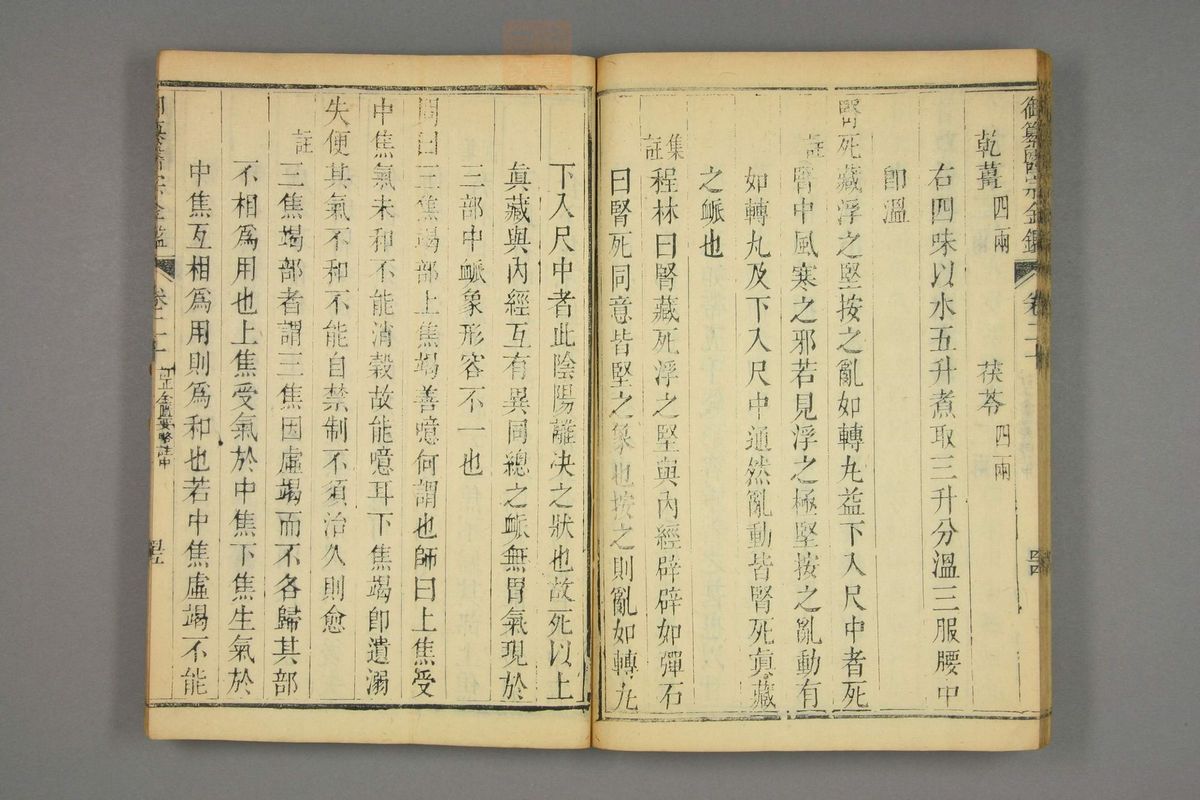 御纂醫宗金鑑 卷二十 四
乾薑四兩 茯苓四兩
右四味以水五升煮取三升分溫三服腰中
即溫
腎死藏浮之堅按之亂如轉丸益下入尺中者死
註 腎中風寒之邪若見浮之極堅按之亂動有
如轉丸及下入尺中通然亂動皆腎死眞藏
之脈也
集註 程林曰腎藏死浮之堅與內經辟辟如彈石
曰腎死同意皆堅之象也按之則亂如轉丸
下入尺中者此陰陽離決之狀也故死以上
眞藏與內經互有異同總之脈無胃氣現於
三部中脈象形容不一也
問曰三焦竭部上焦竭善噫何謂也師曰上焦受
中焦氣未和不能消穀故能噫耳下焦竭卽遺溺
失便其氣不和不能自禁制不須治久則愈
註 三焦竭部者謂三焦因虛竭而不各歸其部
不相爲用也上焦受氣於中焦下焦生氣於
中焦互相爲用則爲和也若中焦虛竭不能
御纂醫宗金鑑 卷二十 訂正金匱要略註中